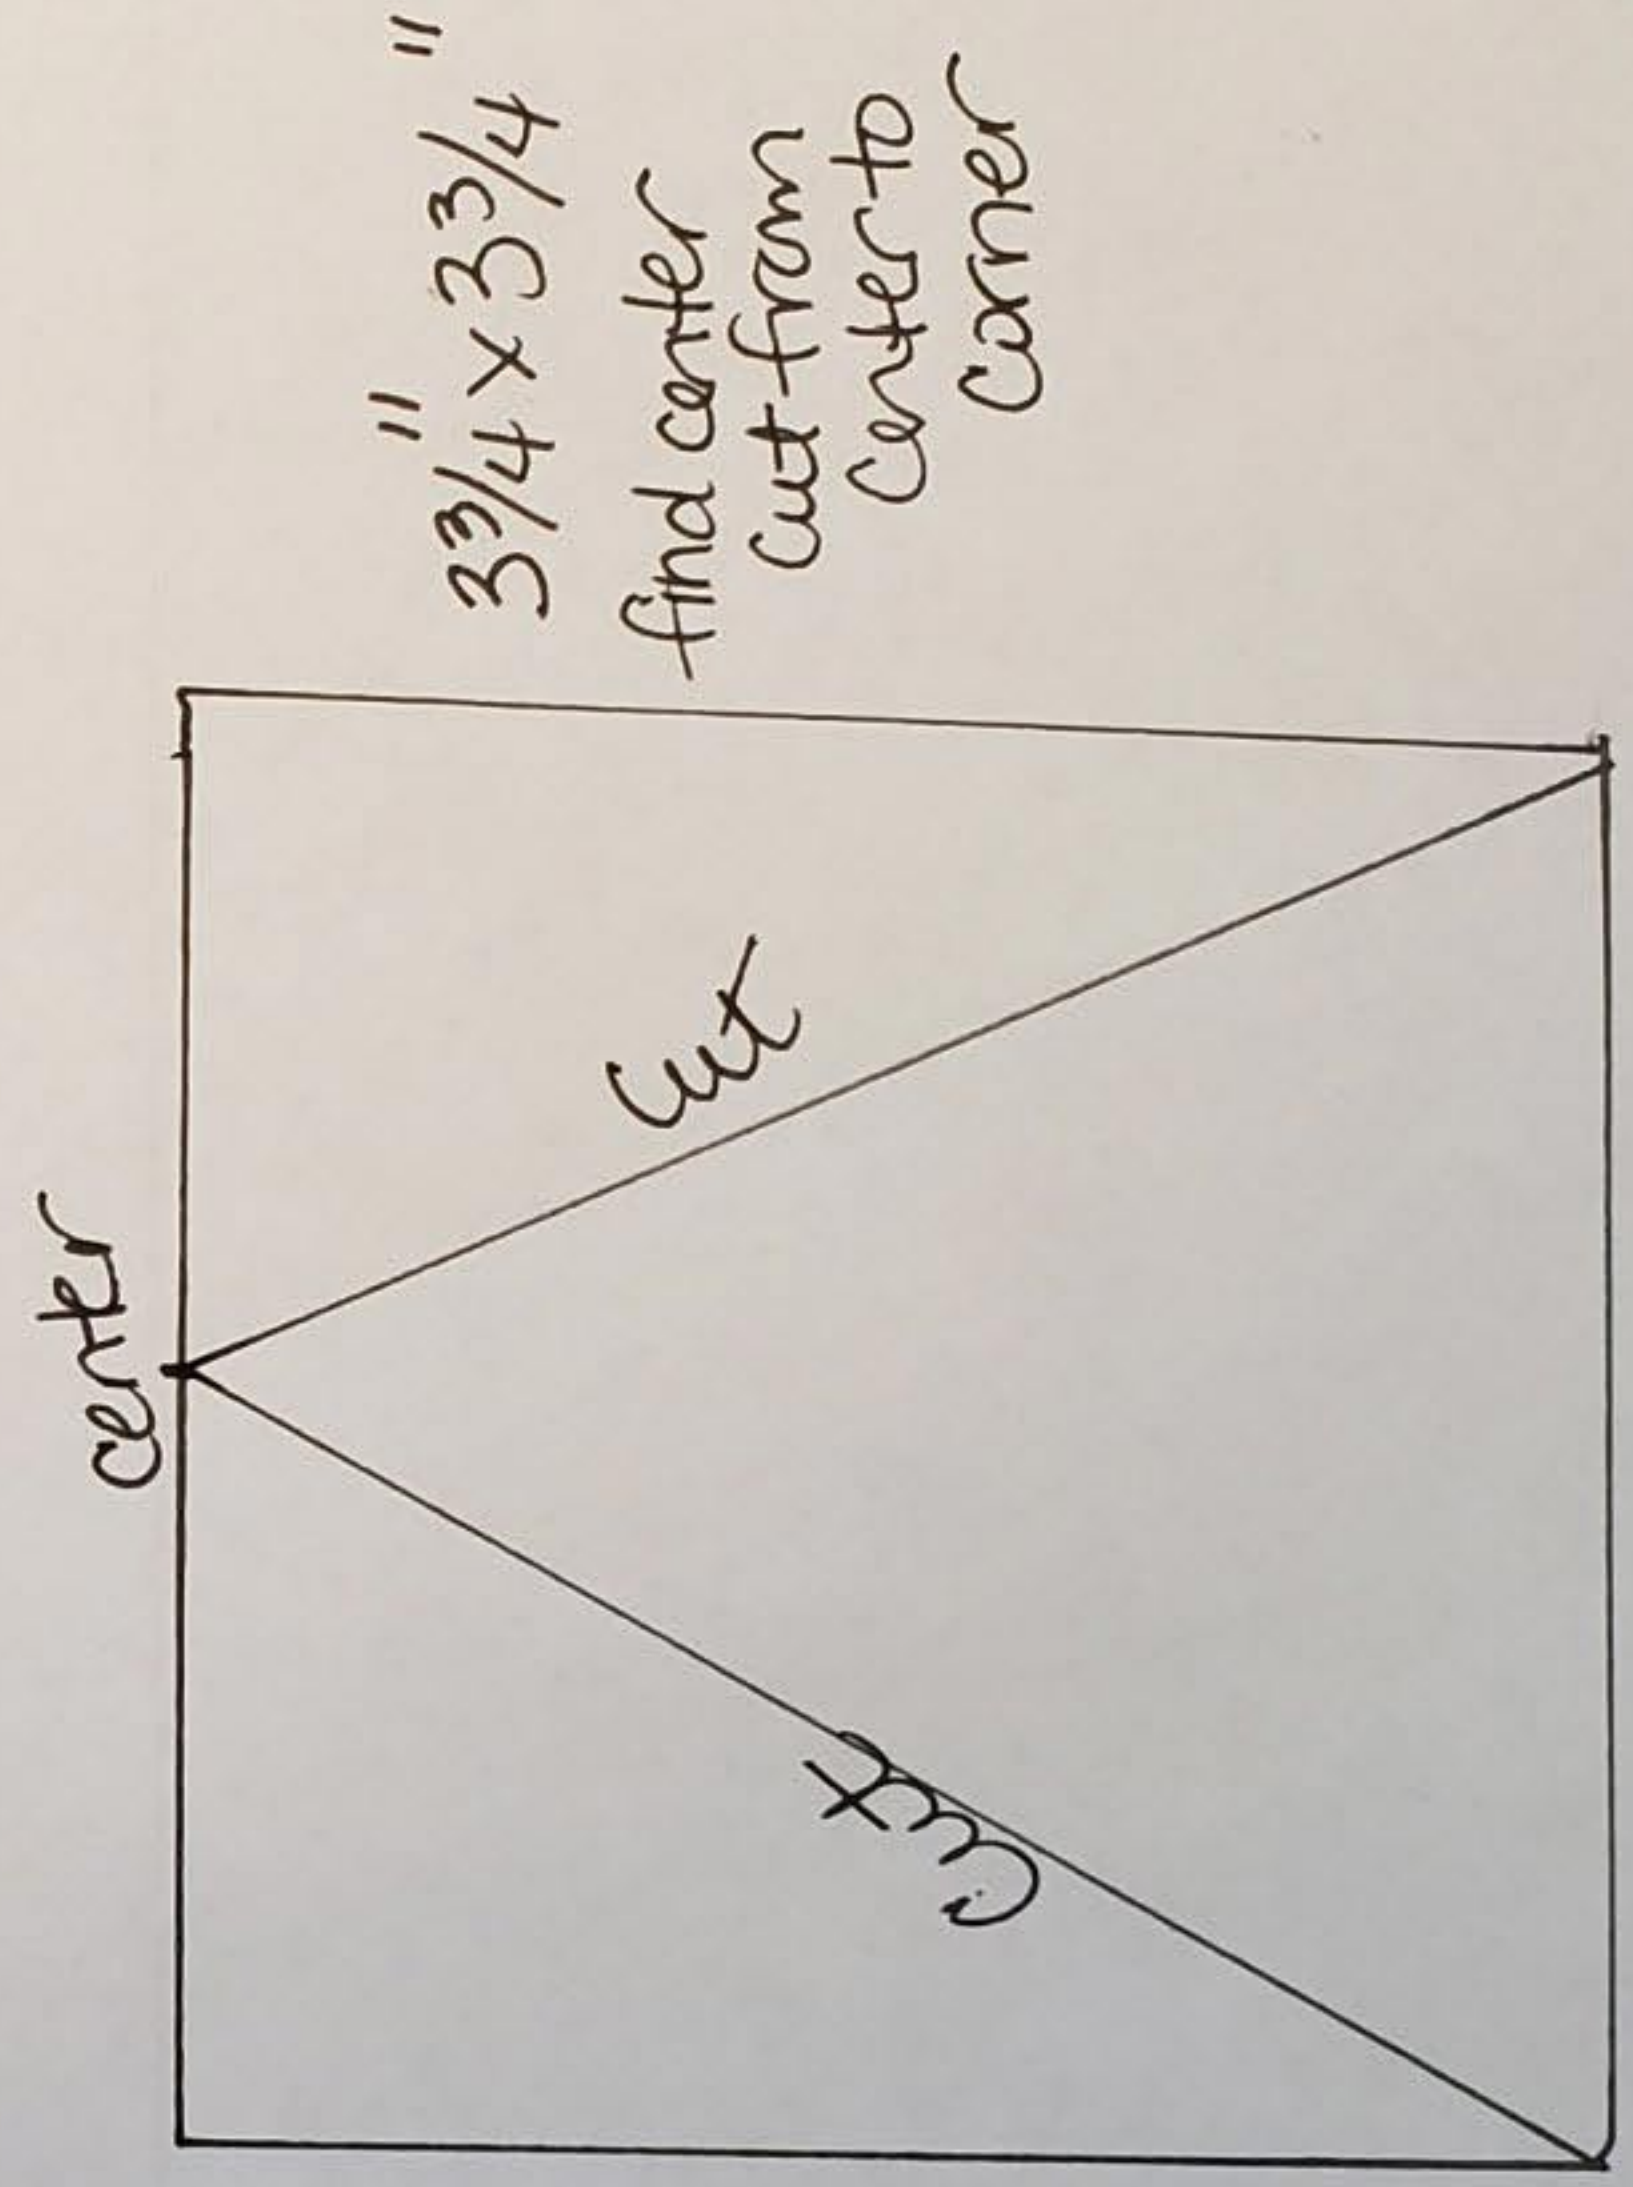 center
Cut
Cut
3 3/4" x 3 3/4"
find center
Cut from
Center to
Corner